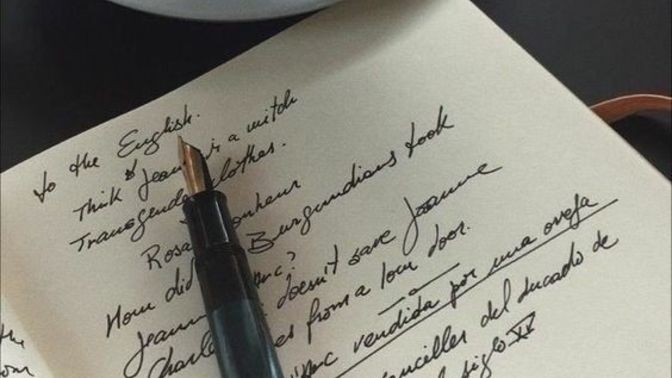 to the English.
Think Jeanne is a witch
Transgender clothes.
Rosa Bonheur
How did Burgundians took
Jeanne Arc?
Charles doesn't save Jeanne
from a low door.
vendida por una oveja
canciller del ducado de
siglo XV
the